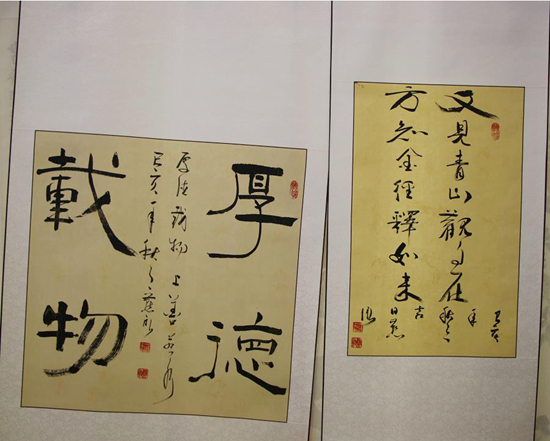 厚德
載物
厚德載物 上善若水
己亥年秋
又見青山觀自在
方知金經釋如來
吉日